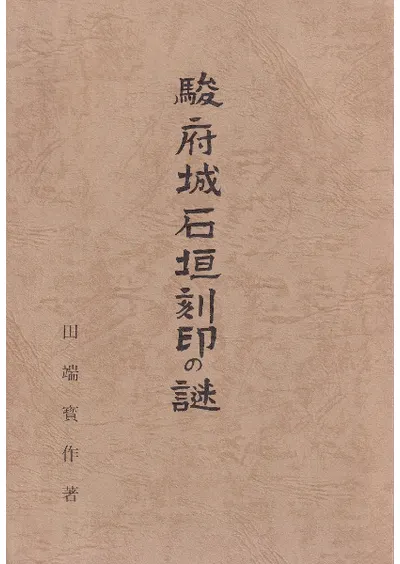 駿府城石垣刻印の謎
田端寳作著